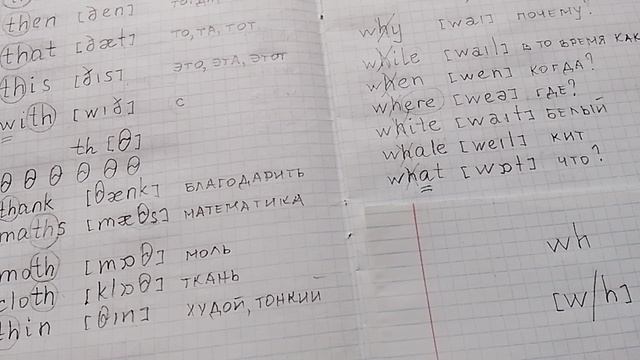 then [ðen]
that [ðæt] ТО, ТА, ТОТ
this [ðɪs] ЭТО, ЭТА, ЭТОТ
with [wɪð] С
th [θ]
θ θ θ θ θ θ
thank [θænk] БЛАГОДАРИТЬ
maths [mæθs] МАТЕМАТИКА
moth [mɒθ] МОЛЬ
cloth [klɒθ] ТКАНЬ
thin [θɪn] ХУДОЙ, ТОНКИЙ
why [waɪ] ПОЧЕМУ?
while [waɪl] В ТО ВРЕМЯ КАК
when [wen] КОГДА?
where [weə] ГДЕ?
white [waɪt] БЕЛЫЙ
whale [weɪl] КИТ
what [wɒt] ЧТО?
wh
[w/h]